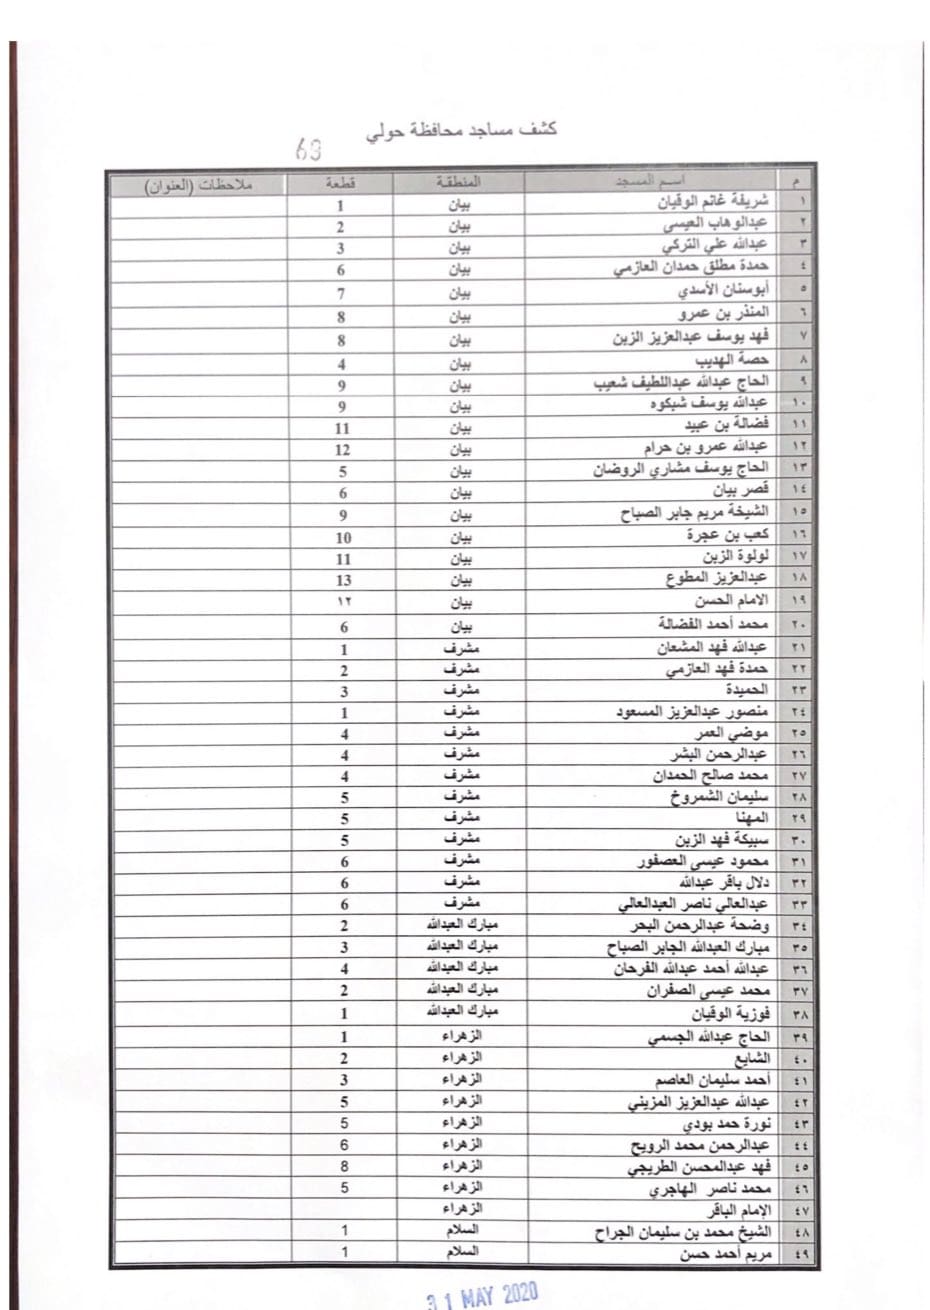 كشف مساجد محافظة حولي
69
م اسم المسجد المنطقة قطعة ملاحظات (العنوان)
١ شريفة غانم الوقيان بيان 1
٢ عبدالوهاب العيسى بيان 2
٣ عبدالله علي التركي بيان 3
٤ حمدة مطلق حمدان العازمي بيان 6
٥ أبوسنان الأسدي بيان 7
٦ المنذر بن عمرو بيان 8
٧ فهد يوسف عبدالعزيز الزبن بيان 8
٨ حصة الهديب بيان 4
٩ الحاج عبدالله عبداللطيف شعيب بيان 9
١٠ عبدالله يوسف شبكوه بيان 9
١١ فضالة بن عبيد بيان 11
١٢ عبدالله عمرو بن حرام بيان 12
١٣ الحاج يوسف مشاري الروضان بيان 5
١٤ قصر بيان بيان 6
١٥ الشيخة مريم جابر الصباح بيان 9
١٦ كعب بن عجرة بيان 10
١٧ لولوة الزبن بيان 11
١٨ عبدالعزيز المطوع بيان 13
١٩ الامام الحسن بيان ١٢
٢٠ محمد أحمد الفضالة بيان 6
٢١ عبدالله فهد المشعان مشرف 1
٢٢ حمدة فهد العازمي مشرف 2
٢٣ الحميدة مشرف 3
٢٤ منصور عبدالعزيز المسعود مشرف 1
٢٥ موضي العمر مشرف 4
٢٦ عبدالرحمن البشر مشرف 4
٢٧ محمد صالح الحمدان مشرف 4
٢٨ سليمان الشمروخ مشرف 5
٢٩ المهنا مشرف 5
٣٠ سبيكة فهد الزبن مشرف 5
٣١ محمود عيسى العصفور مشرف 6
٣٢ دلال باقر عبدالله مشرف 6
٣٣ عبدالعالي ناصر العبدالعالي مشرف 6
٣٤ وضحة عبدالرحمن البحر مبارك العبدالله 2
٣٥ مبارك العبدالله الجابر الصباح مبارك العبدالله 3
٣٦ عبدالله أحمد عبدالله الفرحان مبارك العبدالله 4
٣٧ محمد عيسى الصفران مبارك العبدالله 2
٣٨ فوزية الوقيان مبارك العبدالله 1
٣٩ الحاج عبدالله الجسمي الزهراء 1
٤٠ الشايع الزهراء 2
٤١ أحمد سليمان العاصم الزهراء 3
٤٢ عبدالله عبدالعزيز المزيني الزهراء 5
٤٣ نورة حمد بودي الزهراء 5
٤٤ عبدالرحمن محمد الرويح الزهراء 6
٤٥ فهد عبدالمحسن الطريجي الزهراء 8
٤٦ محمد ناصر الهاجري الزهراء 5
٤٧ الإمام الباقر الزهراء
٤٨ الشيخ محمد بن سليمان الجراح السلام 1
٤٩ مريم أحمد حسن السلام 1
31 MAY 2020